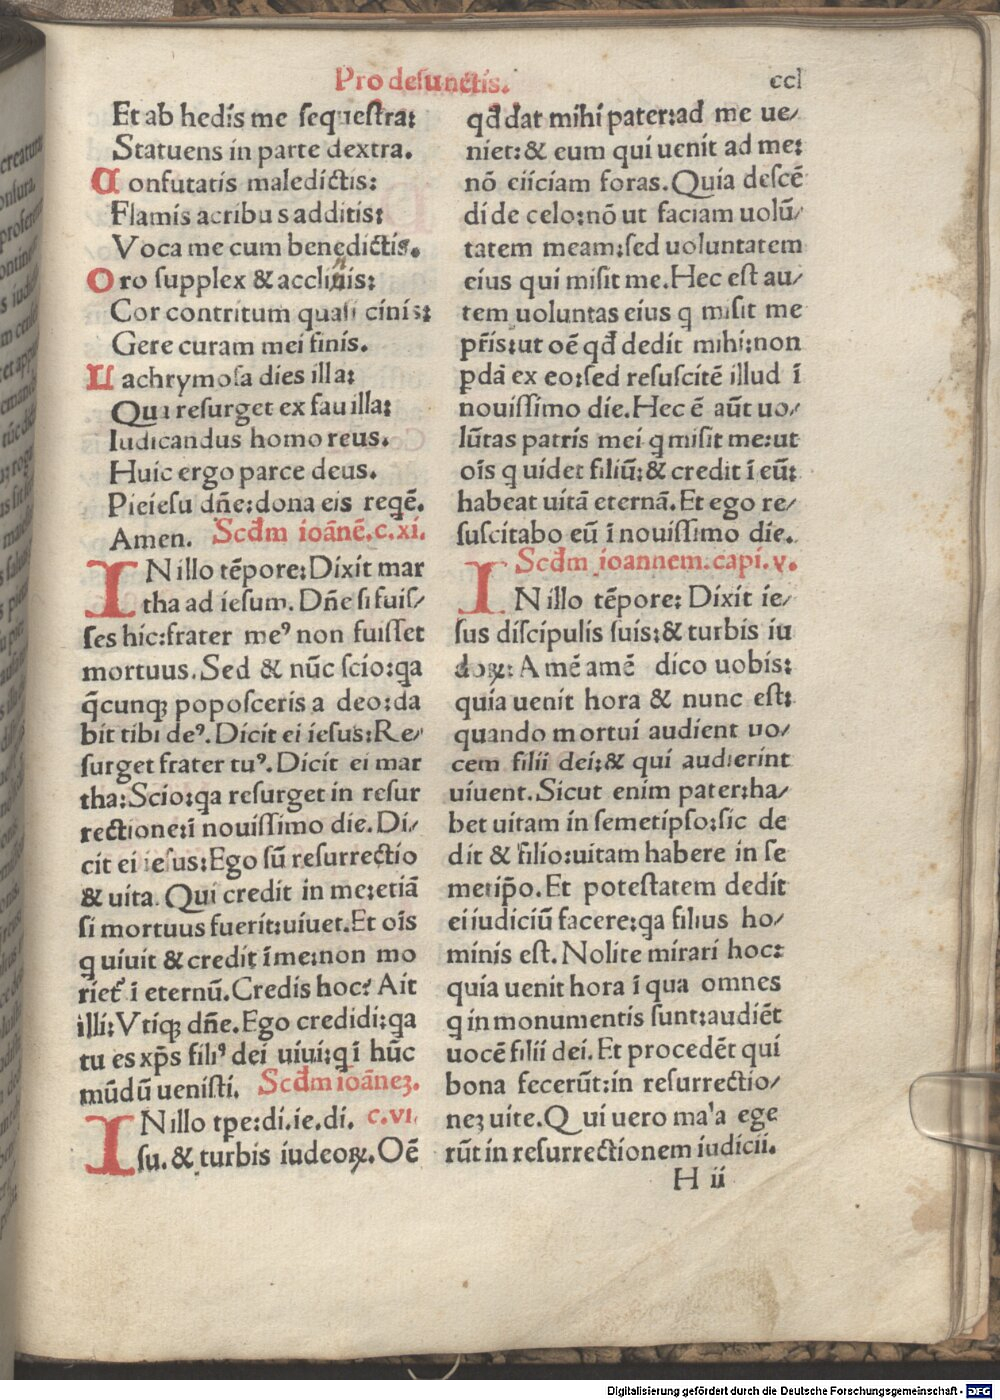 Pro defunctis.
ccl
Et ab hedis me sequestra:
Statuens in parte dextra.
Confutatis maledictis:
Flamis acribus additis:
Voca me cum benedictis.
Oro supplex & acclinis:
Cor contritum quasi cinis:
Gere curam mei finis.
Lachrymosa dies illa:
Qua resurget ex fauilla:
Iudicandus homo reus.
Huic ergo parce deus.
Pie iesu dñe: dona eis reqē.
Amen. Scđm ioānē.c.xi.
IN illo tēpore: Dixit mar
tha ad iesum. Dñe si fuis/
ses hic: frater meꝰ non fuisset
mortuus. Sed & nūc scio: qa
q̄cunqꝫ poposceris a deo: da
bit tibi deꝰ. Dicit ei iesus: Re/
surget frater tuꝰ. Dicit ei mar
tha: Scio: qa resurget in resur
rectione: ī nouissimo die. Di/
cit ei iesus: Ego sū resurrectio
& uita. Qui credit in me: etiā
si mortuus fuerit: uiuet. Et oīs
q uiuit & credit ī me: non mo
rietᷣ ī eternū. Credis hoc? Ait
illi: Vtiqꝫ dñe. Ego credidi: qa
tu es xp̄s filiꝰ dei uiui: q ī hūc
mūdū uenisti. Scđm ioāneꝫ.
IN illo tpe: di. ie. di. c.vi.
su. & turbis iudeoꝝ. Oē
qđ dat mihi pater: ad me ue/
niet: & eum qui uenit ad me:
nō eiiciam foras. Quia descē
di de celo: nō ut faciam uolū/
tatem meam: sed uoluntatem
eius qui misit me. Hec est au/
tem uoluntas eius q misit me
pr̄is: ut oē qđ dedit mihi: non
pdā ex eo: sed resuscitē illud ī
nouissimo die. Hec ē aūt uo/
lūtas patris mei q misit me: ut
oīs q uidet filiū: & credit ī eū:
habeat uitā eternā. Et ego re/
suscitabo eū ī nouissimo die.
Scđm ioannem. capi. v.
IN illo tēpore: Dixit ie/
sus discipulis suis: & turbis iu
doꝝ: Amē amē dico uobis:
quia uenit hora & nunc est:
quando mortui audient uo/
cem filii dei: & qui audierint
uiuent. Sicut enim pater: ha/
bet uitam in semetipso: sic de
dit & filio: uitam habere in se
metip̄o. Et potestatem dedit
ei iudiciū facere: qa filius ho/
minis est. Nolite mirari hoc:
quia uenit hora ī qua omnes
q in monumentis sunt: audiēt
uocē filii dei. Et procedēt qui
bona fecerūt: in resurrectio/
neꝫ uite. Qui uero mala ege
rūt in resurrectionem iudicii.
H ii
Digitalisierung gefördert durch die Deutsche Forschungsgemeinschaft - DFG